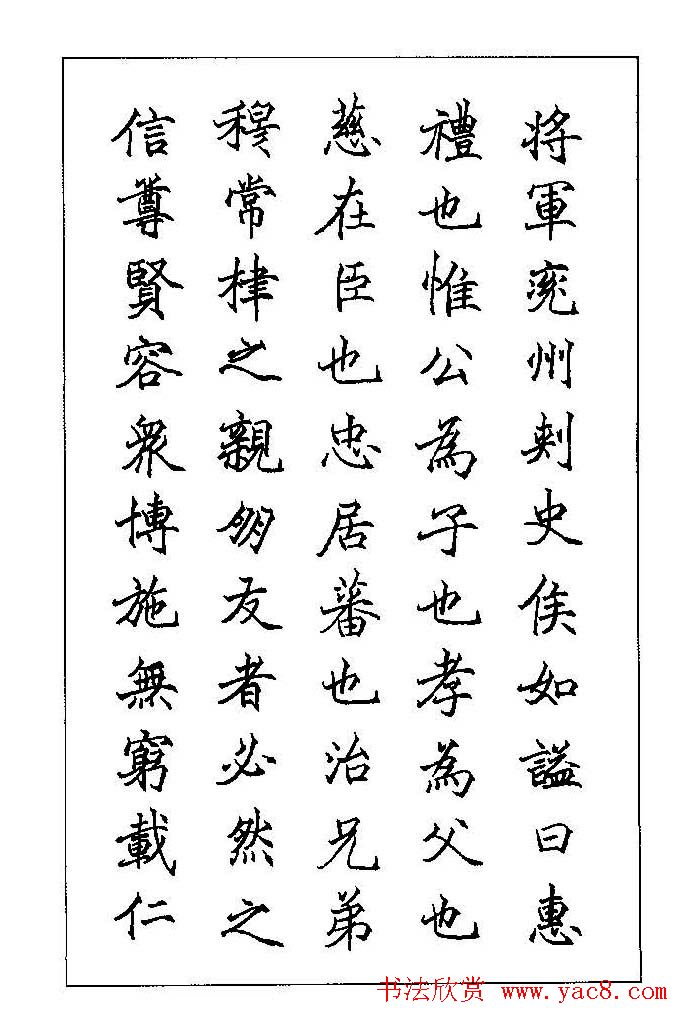 将軍兖州刺史侯如謚曰惠
禮也惟公為子也孝為父也
慈在臣也忠居蕃也治兄弟
穆常棣之親朋友者必然之
信尊賢容眾博施無窮載仁
书法欣赏 www.yac8.com